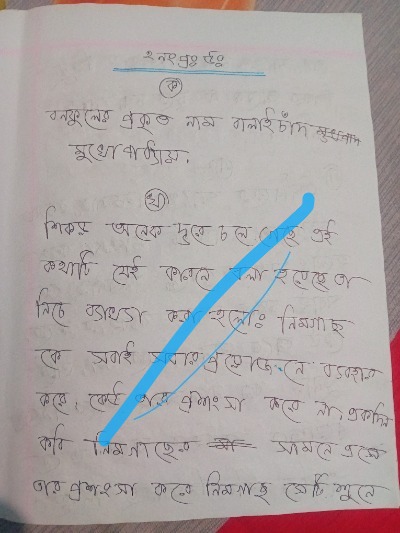 ২নং প্রঃ উঃ
ক
বনফুলের প্রকৃত নাম বলাইচাঁদ
মুখোপাধ্যায়.
খ
শিকড় অনেক দূরে চলে গেছে এই
কথাটি যেই কারনে বলা হয়েছে তা
নিচে ব্যাখ্যা করা হলোঃ নিমগাছ
কে সবাই সবার প্রয়োজনে ব্যবহার
করে, কেউ এর প্রশংসা করে না, একদিন
কবি নিমগাছের সামনে এসে
তার প্রশংসা করে নিমগাছ সেটি শুনে